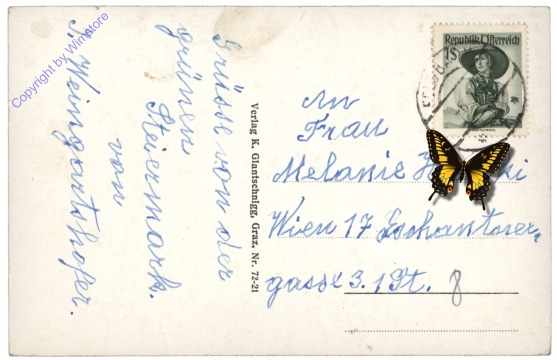 Grüsse von der
grünen
Steiermark.
von
J. Weingartshofer.
Verlag K. Glantschnigg, Graz. Nr. 72-21
An
Frau
Melanie
Wien 17
gasse 3. 1 St. 8
Republik Österreich
1S
Copyright by Wimstore